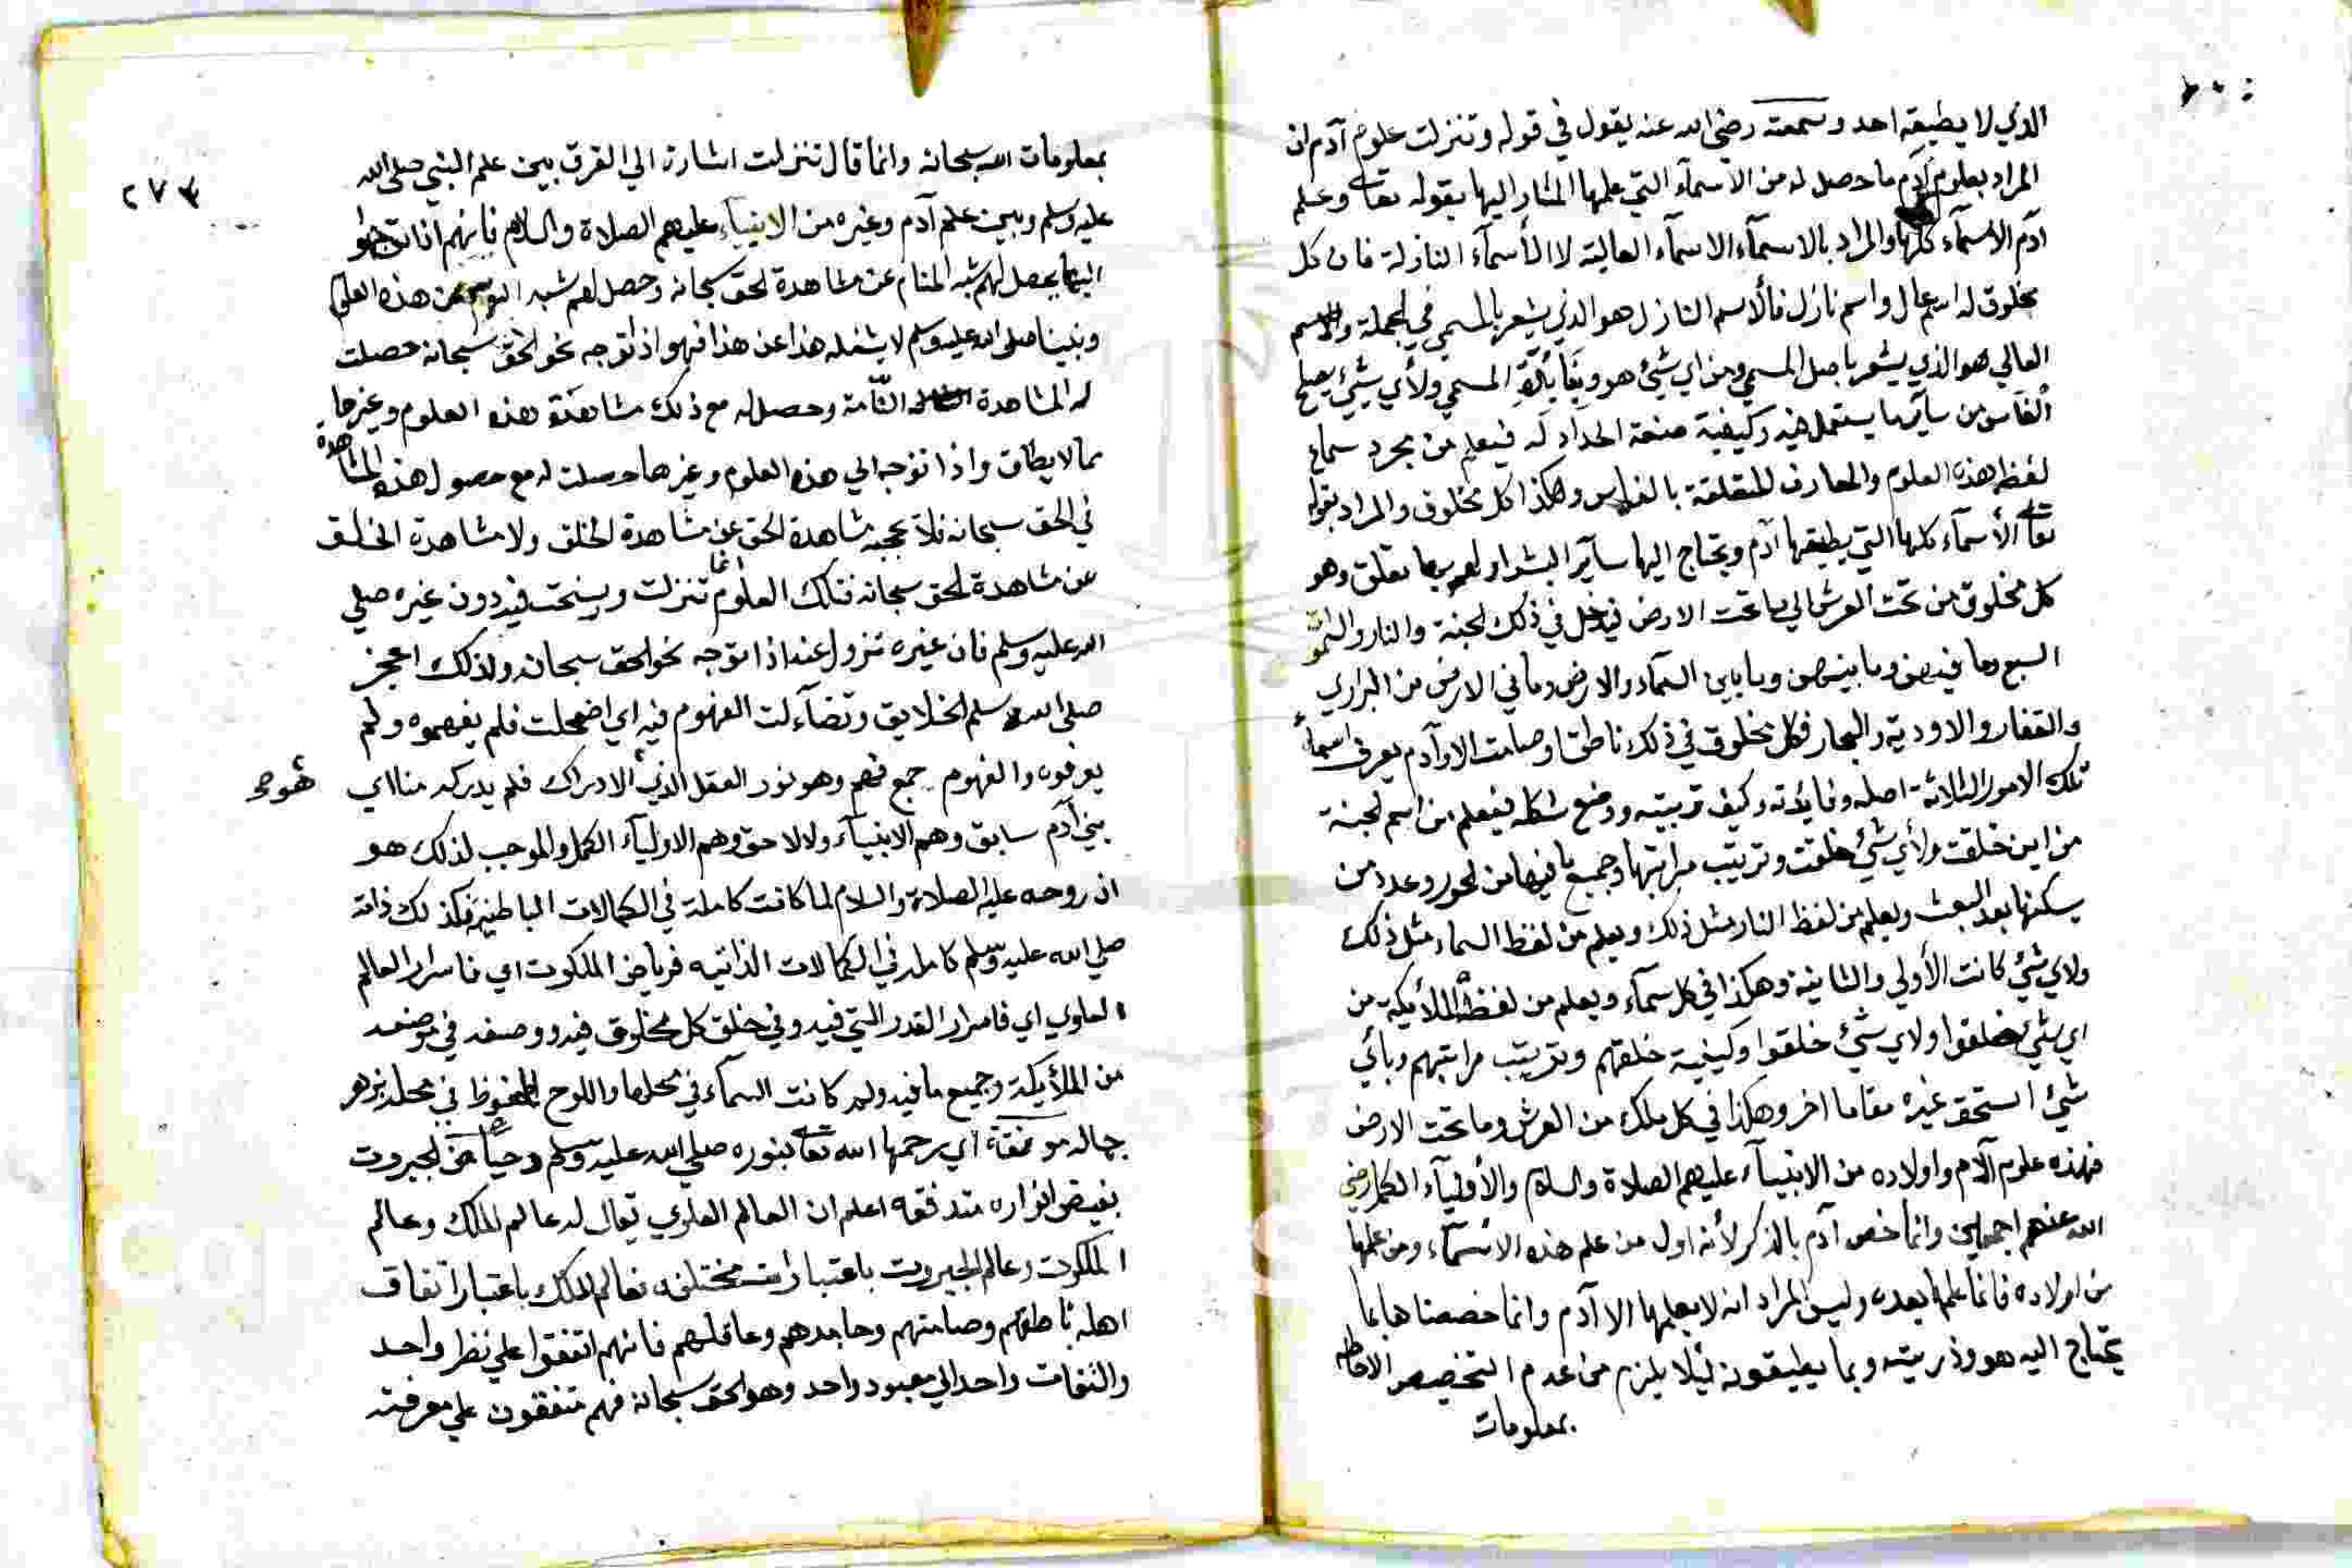 الذي لا يطيقه احد وسمعته رضي الله عنه يقول في قوله وتنزلت علوم آدم ان
المراد بعلوم آدم ما حصل له من الأسمآء التي علمها المشار اليها بقوله تعالى وعلم
آدم الاسمآء كلها والمراد بالاسمآء الاسمآء العالية لا الأسمآء النازلة فان كل
مخلوق له اسم عال واسم نازل فالأسم النازل هو الذي يشعر بالمسمي في الجملة والاسم
العالي هو الذي يشعر باصل المسمي ومن اي شئ هو وبفايدة المسمي ولأي شئ يصلح
الفاس من ساير ما يستعمل فيه وكيفية صنعة الحداد له فيعلم من مجرد سماع
لفظه هذه العلوم والمعارف المتعلقة بالفاس وهكذا كل مخلوق والمراد بقوله
تعالى الأسمآء كلها التي يطيقها آدم ويحتاج اليها سآير البشر او لهم بها تعلق وهو
كل مخلوق من تحت العرش الي ما تحت الارض فيدخل في ذلك الجنة والنار والسموات
السبع وما فيهن وما بينهن وما بين السمآء والارض وما في الارض من البراري
والقفار والاودية والبحار فكل مخلوق في ذلك ناطق او صامت الا وآدم يعرف اسمه
تلك الامور الثلاثة اصله وفايدته وكيف ترتيبه ووضع شكله فيعلم من اسم الجنة
من اين خلقت ولأي شئ خلقت وترتيب مراتبها وجميع ما فيها من الحور وعدد من
يسكنها بعد البعث ويعلم من لفظ النار مثل ذلك ويعلم من لفظ السماء مثل ذلك
ولاي شئ كانت الأولي والثانية وهكذا في كل سمآء ويعلم من لفظ الملآيكة من
اي شئ خلقوا ولاي شئ خلقوا وكيفية خلقهم وترتيب مراتبهم وبأي
شئ استحق غيره مقاما اخر وهكذا في كل ملك من العرش وما تحت الارض
فهذه علوم آدم واولاده من الانبيآء عليهم الصلاة والسلام والأوليآء الكمل رضي
الله عنهم اجمعين وانما خص آدم بالذكر لأنه اول من علم هذه الاسمآء ومن علمها
من اولاده فانما علمها بعده وليس المراد انه لا يعلمها الا آدم وانما خصصنا ها بما
يحتاج اليه هو وذريته وبما يطيقونه ليلا يلزم من عدم التخصيص الاحاطه
بمعلومات
٢٧٣
بمعلومات الله سبحانه وانما قال تنزلت اشارة الي الفرق بين علم النبي صلى الله
عليه وسلم وبين علم آدم وغيره من الانبيآء عليهم الصلاة والسلام فانهم اذا توجهوا
اليها يحصل لهم شبه المنام عن مشاهدة الحق سبحانه وحصل لهم شبه النوم عن هذه العلوم
ونبينا صلى الله عليه وسلم لا يشغله هذا عن هذا فهو اذا توجه نحو الحق سبحانه حصلت
له المشاهدة التآمة وحصل له مع ذلك مشاهدة هذه العلوم وغيرها
مما لا يطاق واذا توجه الي هذه العلوم وغيرها حصلت له مع حصول هذه المشاهدة
في الحق سبحانه فلا تحجبه مشاهدة الحق عن مشاهدة الخلق ولا مشاهدة الخلق
عن مشاهدة الحق سبحانه فتلك العلوم انما تنزلت ورسخت فيه دون غيره صلي
الله عليه وسلم فان غيره تزول عنه اذا توجه نحو الحق سبحانه ولذلك اعجز
صلى الله عليه وسلم الخلايق وتضآءلت الفهوم فيه اي اضمحلت فلم يفهموه ولم
يعرفوه والفهوم جمع فهم وهو نور العقل الذي الادراك فلم يدركه منا اي
بني آدم سابق وهم الانبيآء ولا لاحق وهم الاوليآء الكمل والموجب لذلك هو
ان روحه عليه الصلاة والسلام لما كانت كاملة في الكمالات الباطنية فكذلك ذاته
صلي الله عليه وسلم كامله في الكمالات الذاتيه فرياض الملكوت اي فاسرار العالم
العلوي اي فاسرار القدر التي فيه وفي خلق كل مخلوق فيه ووصفه في موضعه
من الملآيكة وجميع ما فيه ولم كانت السمآء في محلها واللوح المحفوظ في محله بزهر
جماله مونقة اي برحمها الله تعالى بنوره صلي الله عليه وسلم وحياض الجبروت
بفيض انواره متدفقه اعلم ان العالم العلوي يقال له عالم الملك وعالم
الملكوت وعالم الجبروت باعتبارات مختلفه فعالم الملك باعتبار اتفاق
اهله ناطقهم وصامتهم وجامدهم وعاقلهم فانهم اتفقوا علي نظر واحد
والتفات واحد الي معبود واحد وهو الحق سبحانه فهم متفقون علي معرفته